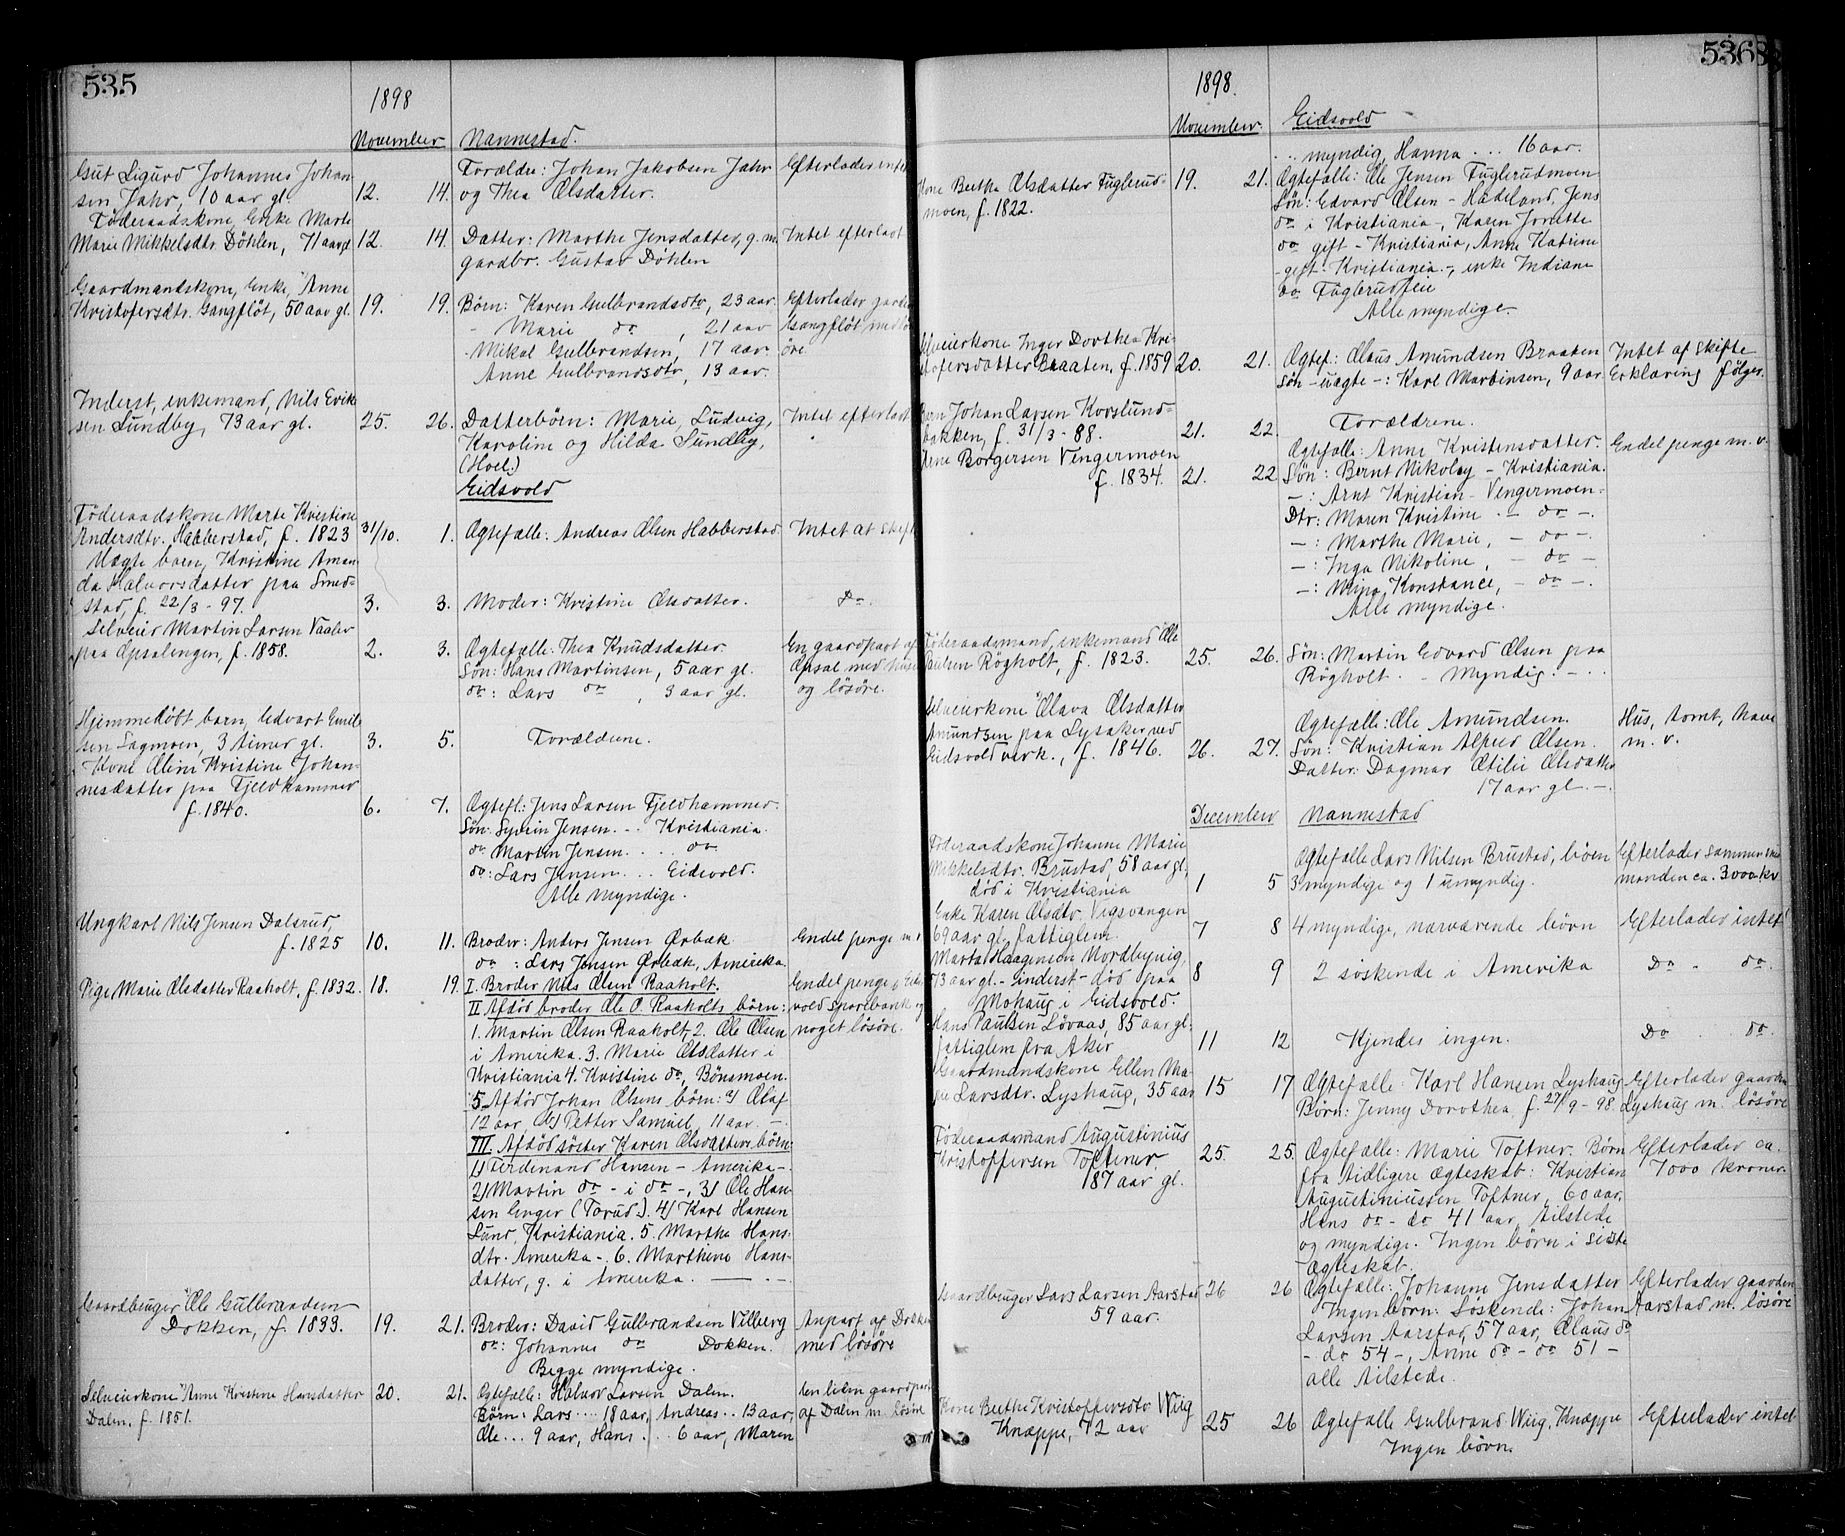 535
1898
November
Nannestad.
Gut Sigurd Johannes Johan-
sen Jahr, 10 aar gl.
12.
14.
Forældre: Johan Jakobsen Jahr
og Thea Olsdatter.
Efterlader intet
Føderaadskone, Enke Marte
Marie Mikkelsdtr. Døhlen, 71 aar gl.
12.
14.
Datter: Marthe Jensdatter, g. m.
gardbr. Gustav Døhlen
Intet efterladt
Gaardmandskone, Enke, Anne
Kristofersdtr. Gangfløt, 50 aar gl.
19.
19.
Børn: Karen Gulbrandsdtr, 23 aar.
- Marie do , 21 aar
- Mikal Gulbrandsen, 17 aar.
Anne Gulbrandsdtr, 13 aar.
Efterlader garden
Gangfløt med løs
øre.
Inderst, enkemand, Nils Erik-
sen Sundby, 73 aar gl.
25.
26.
Datterbørn: Marie, Ludvig,
Karoline og Hilda Sundby,
(Hoel.)
Intet efterladt
Eidsvold
Føderaadskone Marte Kristine
Andersdtr. Habberstad, f. 1823
31/10.
1.
Ægtefælle: Andreas Olsen Habberstad.
Intet at skifte
Uægte barn, Kristine Aman-
da Halvorsdatter paa Smed-
stad, f. 22/3 - 97.
3.
3.
Moder: Kristine Olsdatter.
Do.
Selveier Martin Larsen Vaaler
paa Opsalengen, f. 1858.
2.
3.
Ægtefælle: Thea Knudsdatter.
Søn: Hans Martinsen, 5 aar gl.
do: Lars do , 3 aar gl.
En gaardpart af
Opsal med huse
og løsøre.
Hjemmedøbt barn, Edvart Emil-
sen Sagmoen, 3 timer gl.
3.
5.
Forældrene.
Kone Oline Kristine Johan-
nesdatter paa Fjeldhammer
f. 1840.
6.
7.
Ægtefl.: Jens Larsen Fjeldhammer.
Søn: Syverin Jensen. .. Kristiania.
do Martin Jensen. ... do
do: Lars Jensen... Eidsvold.
Alle myndige.
Ungkarl Nils Jensen Dalsrud,
f. 1825
10.
11.
Broder: Anders Jensen Ørbæk
do : Lars Jensen Ørbæk, Amerika.
Endel penge m. v
Pige Marie Olsdatter Raaholt, f. 1832.
18.
19.
I. Broder Nils Olsen Raaholt.
II Afdød broder Ole O. Raaholts børn:
1. Martin Olsen Raaholt, 2. Ole Olsen
i Amerika. 3. Marie Olsdatter i
Kristiania 4. Kristine do, Bønsmoen.
5. Afdød Johan Olsens børn: a) Olaf
12 aar, b) Petter Samuel, 11 aar. -
III. Afdød søster Karen Olsdatters børn
1) Ferdinand Hansen - Amerika -.
2) Martin do - i do -, 3) Ole Han-
sen Enger (Torud). 4) Karl Hansen
Lund, Kristiania. 5. Marthe Hans-
dtr. Amerika -. 6. Marthine Hans-
datter, g. i Amerika.
Endel penge i Eids-
vold sparebank og
noget løsøre.
Gaardbruger Ole Gulbrandsen
Dokken, f. 1833.
19.
21.
Broder: David Gulbrandsen Vilberg
do: Johannes do Dokken.
Begge myndige.
Anpart af Dokken
med løsøre
Selveierkone Anne Kristine Hansdatter
Dalen, f. 1851.
20.
21.
Ægtefælle: Halvor Larsen Dalen.
Børn: Lars ... 18 aar, Andreas .. 13 aar,
Ole ... 9 aar, Hans ... 6 aar, Maren
En liden gaardpart
af Dalen m. løsøre
536
1898.
November.
Eidsvold
... myndig, Hanna ... 16 aar.
Kone Berthe Olsdatter Fuglerud-
moen, f. 1822.
19.
21.
Ægtefælle: Ole Jensen Fuglerudmoen
Søn: Edvard Olsen - Hadeland, Jens
do i Kristiania -, Karen Jonette
do gift - Kristiania, Anne Katrine
- gift - Kristiania. -, enke Indiane
do Fuglerudseie
Alle myndige.
Selveierkone Inger Dorthea Kri-
stofersdatter Braaten, f. 1859
20.
21.
Ægtef.: Olaus Amundsen Braaten
Søn - uægte -: Karl Martinsen, 9 aar
Intet af skifte
Erklæring følger.
Barn Johan Larsen Korslund-
bakken, f. 31/3 - 88.
21.
22.
Forældrene.
Arne Borgersen Vengermoen
f. 1834.
21.
22
Ægtefælle: Anne Kristensdatter.
Søn: Bernt Nikolay - Kristiania.
- : Arnt Kristian - Vengermoen -
Dtr: Maren Kristine . - do -.
- : Marthe Marie, - do -.
- : Inga Nikoline, - do -
- : Mina Konstance, - do -.
Alle myndige.
Endel penge m. v.
Føderaadsmand, enkemand Ole
Paulsen Røgholt, f. 1823.
25.
26.
Søn: Martin Edvard Olsen paa
Røgholt. - Myndig. -
Selveierkone Olava Olsdatter
Amundsen paa Lysaker ved
Eidsvold verk., f. 1846.
26.
27.
Ægtefælle: Ole Amundsen.
Søn: Kristian Alfred Olsen.
Datter: Dagmar Otilie Olsdatter
17 aar gl. -.
Hus, tomt, have
m. v.
December
Nannestad
Føderaadskone Johanne Marie
Mikkelsdtr. Brustad, 58 aar gl.
død i Kristiania
1
5
Ægtefælle Lars Nilsen Brustad, børn
3 myndige og 1 umyndig.
Efterlader sammen med
manden ca. 3000 kr
Enke Karen Olsdtr. Vigsvangen
69 aar gl. fattiglem.
7
8
4 myndige, nærværende børn
Efterlader intet
Marta Haagensen Nordbyvig,
73 aar gl. - inderst - død paa
Mohaug i Eidsvold.
8
9
2 søskende i Amerika
Do - do.
Hans Paulsen Løvaas, 85 aar gl.
fattiglem fra Aker
11
12
Kjendes ingen.
Do do.
Gaardmandskone Ellen Ma-
rie Larsdtr. Lyshaug, 35 aar
15
17
Ægtefælle: Karl Hansen Lyshaug
Børn: Jenny Dorothea, f. 27/9 - 98
Efterlader gaarden
Lyshaug m. løsøre
Føderaadsmand Augustinius
Kristoffersen Toftner.
87 aar gl.
25.
25.
Ægtefælle: Marie Toftner. Børn
fra tidligere ægteskab: Kristian
Augustiniussen Toftner, 60 aar,
Hans do - do 41 aar, tilstede
og myndige. Ingen børn i siste
Ægteskab.
Efterlader ca.
7000 kroner
Gaardbruger Lars Larsen Aarstad
59 aar.
26
26
Ægtefælle: Johanne Jensdatter
Ingen børn: Søskende: Johan
Larsen Aarstad, 57 aar, Olaus do
- do 54 -, Anne do - do 51 -
alle tilstede.
Efterlader gaarden
Aarstad m. løsøre
Kone Berthe Kristoffersdtr Wiig
Knæppe, 72 aar
25
26
Ægtefælle Gulbrand Wiig, Knæppe
Ingen børn.
Efterlader intet.